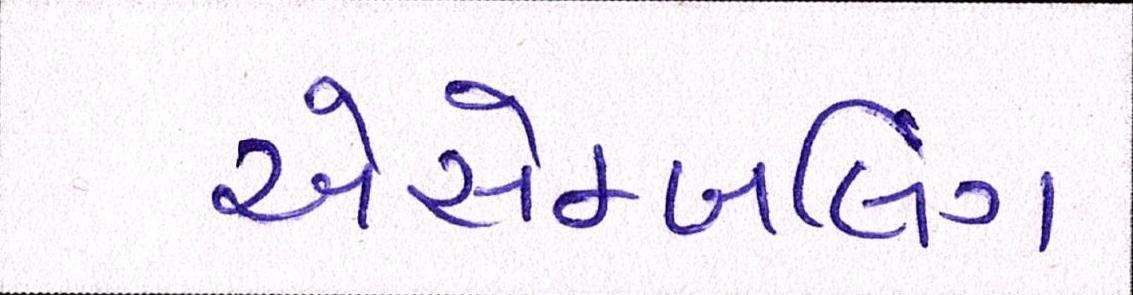 એસેમ્બલિંગ